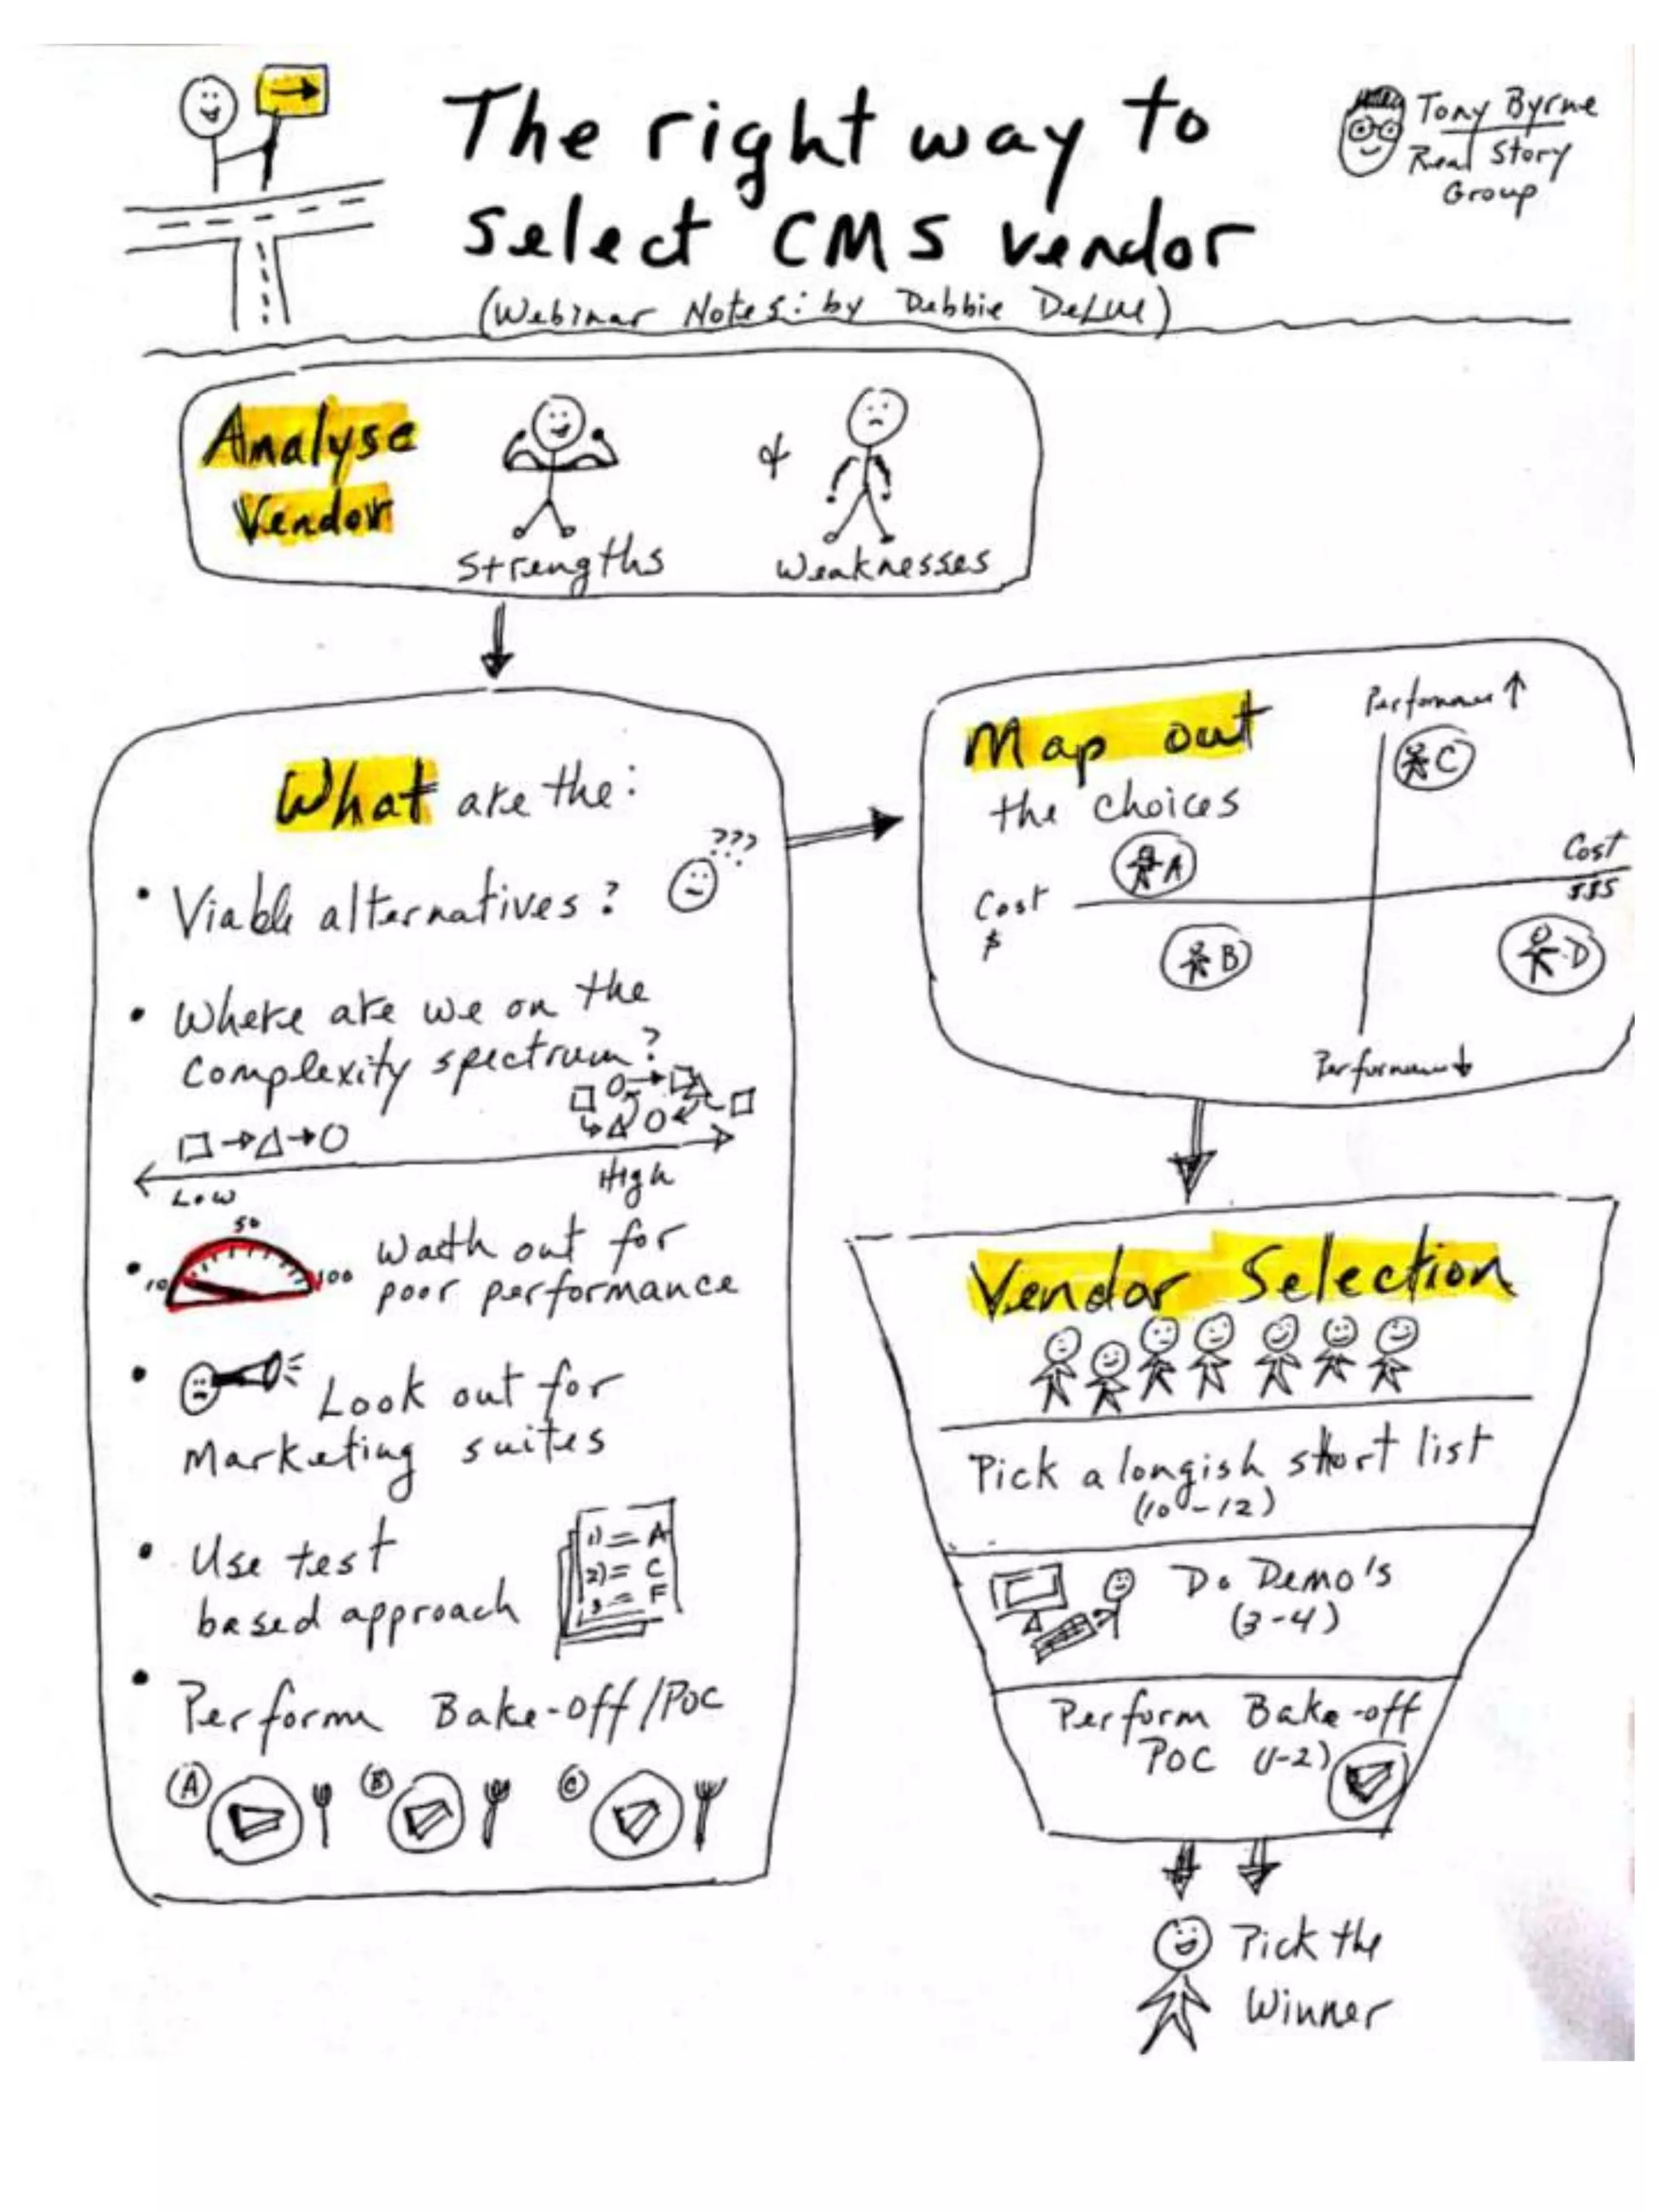 The right way to
select CMS vendor
(Webinar Notes: by Debbie DeLue)
Tony Byrne
Real Story
Group
Analyse
Vendor
Strengths
&
Weaknesses
What are the:
???
• Viable alternatives?
• Where are we on the
complexity spectrum?
Low
High
• 10 50 100
Wacth out for
poor performance
• Look out for
Marketing suites
• Use test
based approach
1) = A
2) = C
3 = F
• Perform Bake-off/POC
A
B
C
Map out
the choices
Performance ↑
C
A
Cost
$
Cost
$$$
B
D
Performance ↓
Vendor Selection
Pick a longish short list
(10-12)
Do Demo's
(3-4)
Perform Bake-off
POC (1-2)
Pick the
Winner